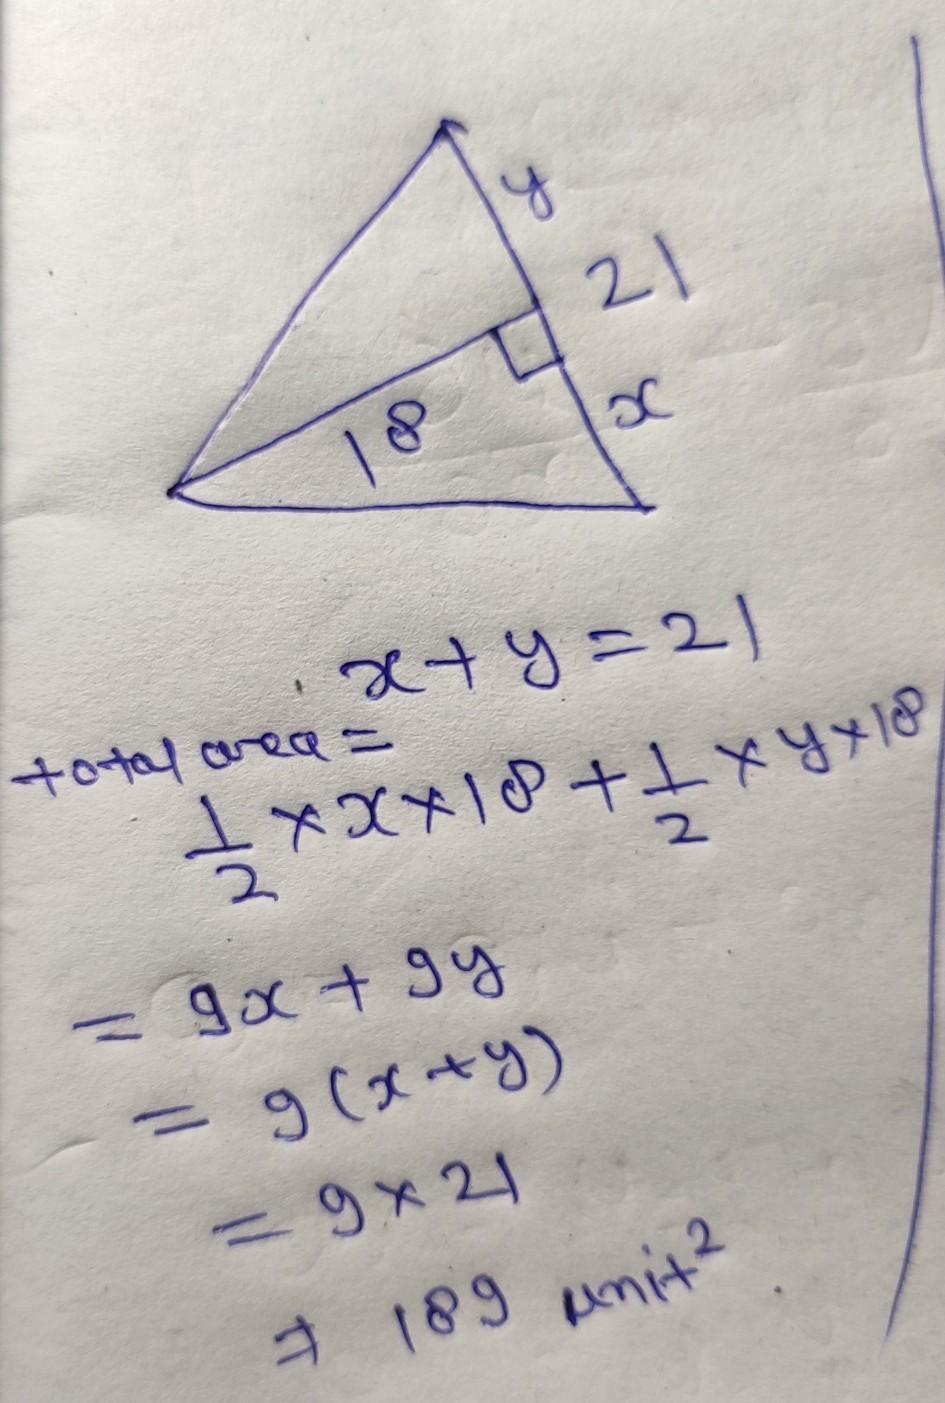 y
21
x
18
x + y = 21
total area =
1/2 × x × 18 + 1/2 × y × 18
= 9x + 9y
= 9(x + y)
= 9 × 21
= 189 unit²